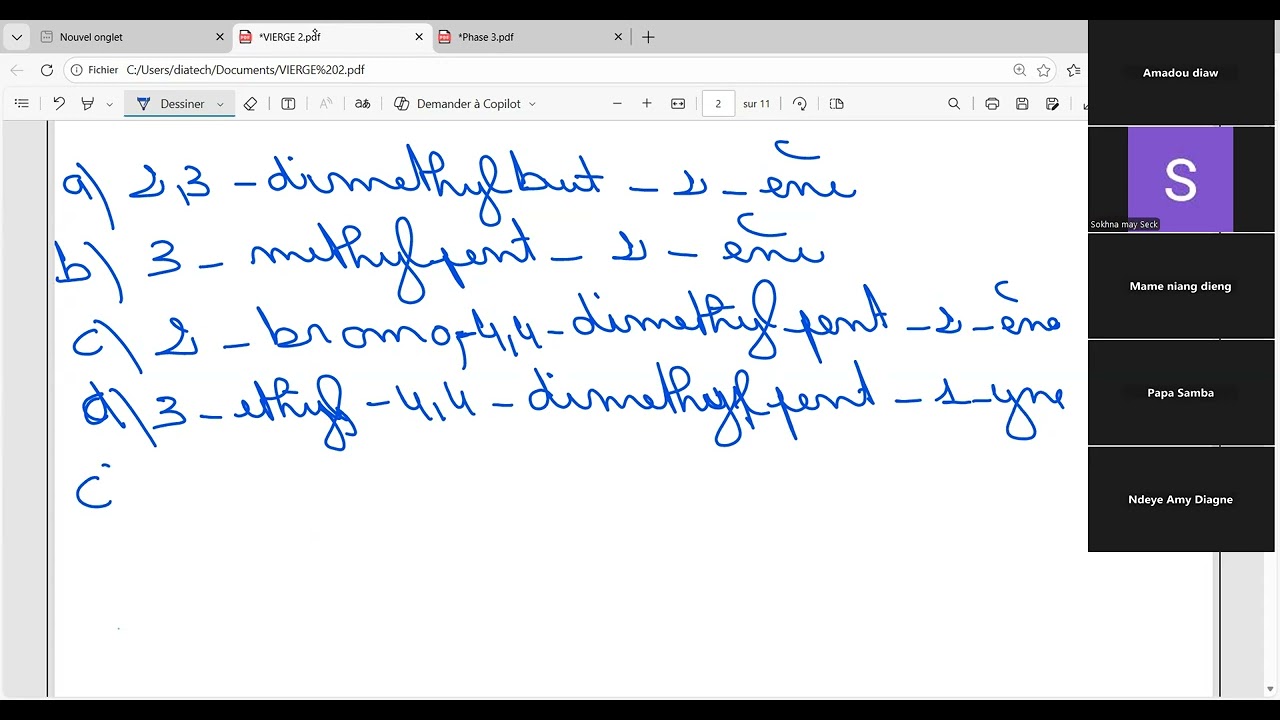 Nouvel onglet
*VIERGE 2.pdf
*Phase 3.pdf
Fichier C:/Users/diatech/Documents/VIERGE%202.pdf
Dessiner
Demander à Copilot
2 sur 11
a) 2,3 - dimethylbut - 2 - ène
b) 3 - methylpent - 2 - ène
c) 2 - bromo,-4,4-dimethyl pent - 2 - ène
d) 3 - ethyl, -4,4 - dimethyl pent - 1 - yne
Amadou diaw
S
Sokhna may Seck
Mame niang dieng
Papa Samba
Ndeye Amy Diagne